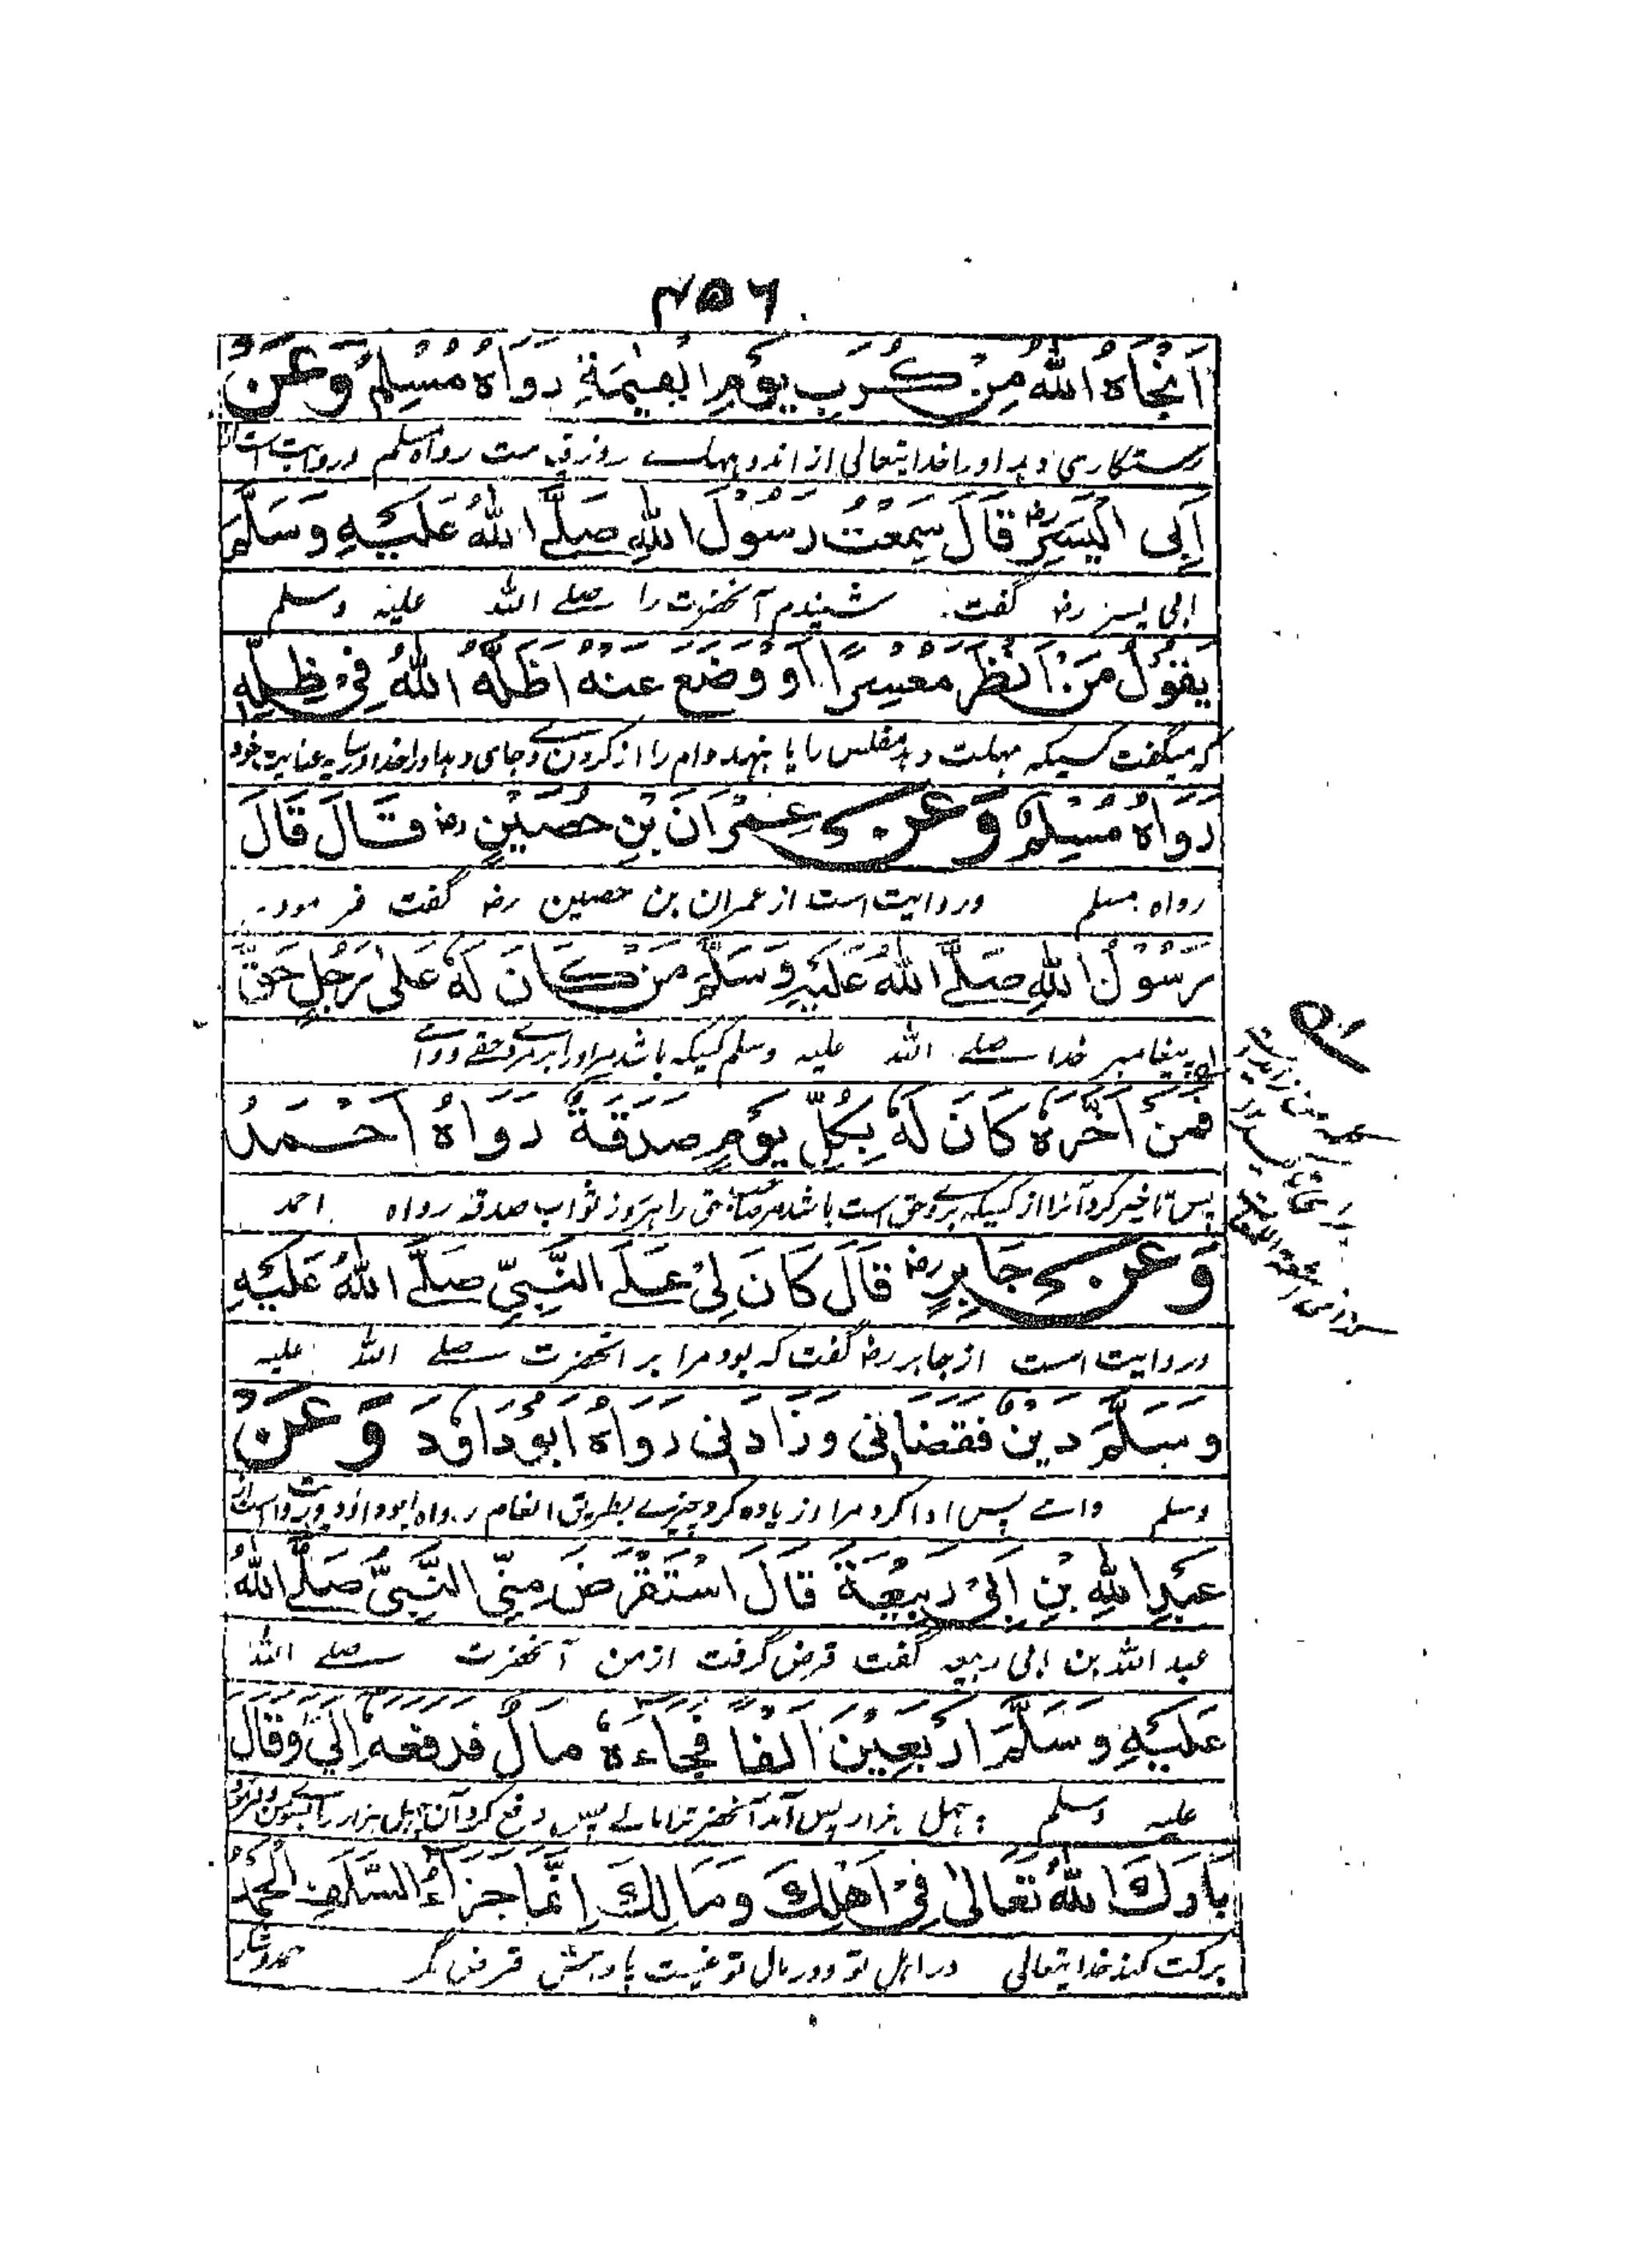 ۴۵۶
اَنْجَاهُ اللّٰهُ مِنْ كُرَبِ يَوْمِ الْقِيٰمَةِ رَوَاهُ مُسْلِمٌ وَعَنْ
رستگاری دہد اورا خدایتعالی از اندوہہاے روز قیامت رواہ مسلم وروایت است از
اَبِى الْيَسَرِ رض قَالَ سَمِعْتُ رَسُوْلَ اللّٰهِ صَلَّے اللّٰهُ عَلَيْهِ وَسَلَّمَ
ابی یسر رض گفت شنیدم آنحضرت را صلے اللہ علیہ وسلم
يَقُوْلُ مَنْ اَنْظَرَ مُعْسِرًا اَوْ وَضَعَ عَنْهُ اَظَلَّهُ اللّٰهُ فِىْ ظِلِّهٖ
کہ میگفت کسیکہ مہلت دہد مفلس را یا بنہد وام را از گردن وے جای دہد اورا خدا در سایہ عنایت خود
رَوَاهُ مُسْلِمٌ وَعَنْ عِمْرَانَ بْنِ حُصَيْنٍ رض قَالَ قَالَ
رواہ مسلم وروایت است از عمران بن حصین رض گفت فرمود
رَسُوْلُ اللّٰهِ صَلَّے اللّٰهُ عَلَيْهِ وَسَلَّمَ مَنْ كَانَ لَهٗ عَلٰى رَجُلٍ حَقٌّ
پیغامبر خدا صلے اللہ علیہ وسلم کسیکہ باشد مر اورا بر مردے حقے ووامے
فَمَنْ اَخَّرَهٗ كَانَ لَهٗ بِكُلِّ يَوْمٍ صَدَقَةٌ رَوَاهُ اَحْمَدُ
پس تاخیر کرد آنرا از کسیکہ بروے حق است باشد مر صاحب حق را بہر روز ثواب صدقہ رواہ احمد
وَعَنْ جَابِرٍ رض قَالَ كَانَ لِىْ عَلَے النَّبِىِّ صَلَّے اللّٰهُ عَلَيْهِ
وروایت است از جابر رض گفت کہ بود مرا بر انحضرت صلے اللہ علیہ
وَسَلَّمَ دَيْنٌ فَقَضَانِى وَزَادَنِى رَوَاهُ اَبُوْدَاوٗدَ وَعَنْ
وسلم وامے پس ادا کرد مرا وزیادہ کرد چیزے بطریق انعام رواہ ابوداؤد وروایت است از
عَبْدِ اللّٰهِ بْنِ اَبِىْ رَبِيْعَةَ قَالَ اسْتَقْرَضَ مِنِّى النَّبِىُّ صَلَّے اللّٰهُ
عبد اللہ بن ابی ربیعہ گفت قرض گرفت از من آنحضرت صلے اللہ
عَلَيْهِ وَسَلَّمَ اَرْبَعِيْنَ اَلْفًا فَجَاءَهٗ مَالٌ فَدَفَعَهٗ اِلَىَّ وَقَالَ
علیہ وسلم چہل ہزار پس آمد آنحضرت را مالے پس دفع کرد آن چہل ہزار را بسوی من
بَارَكَ اللّٰهُ تَعَالٰى فِىْ اَهْلِكَ وَمَالِكَ اِنَّمَا جَزَاءُ السَّلَفِ الْحَمْدُ
برکت کند خدایتعالی در اہل تو ودر مال تو نیست پاداش قرض مگر حمد